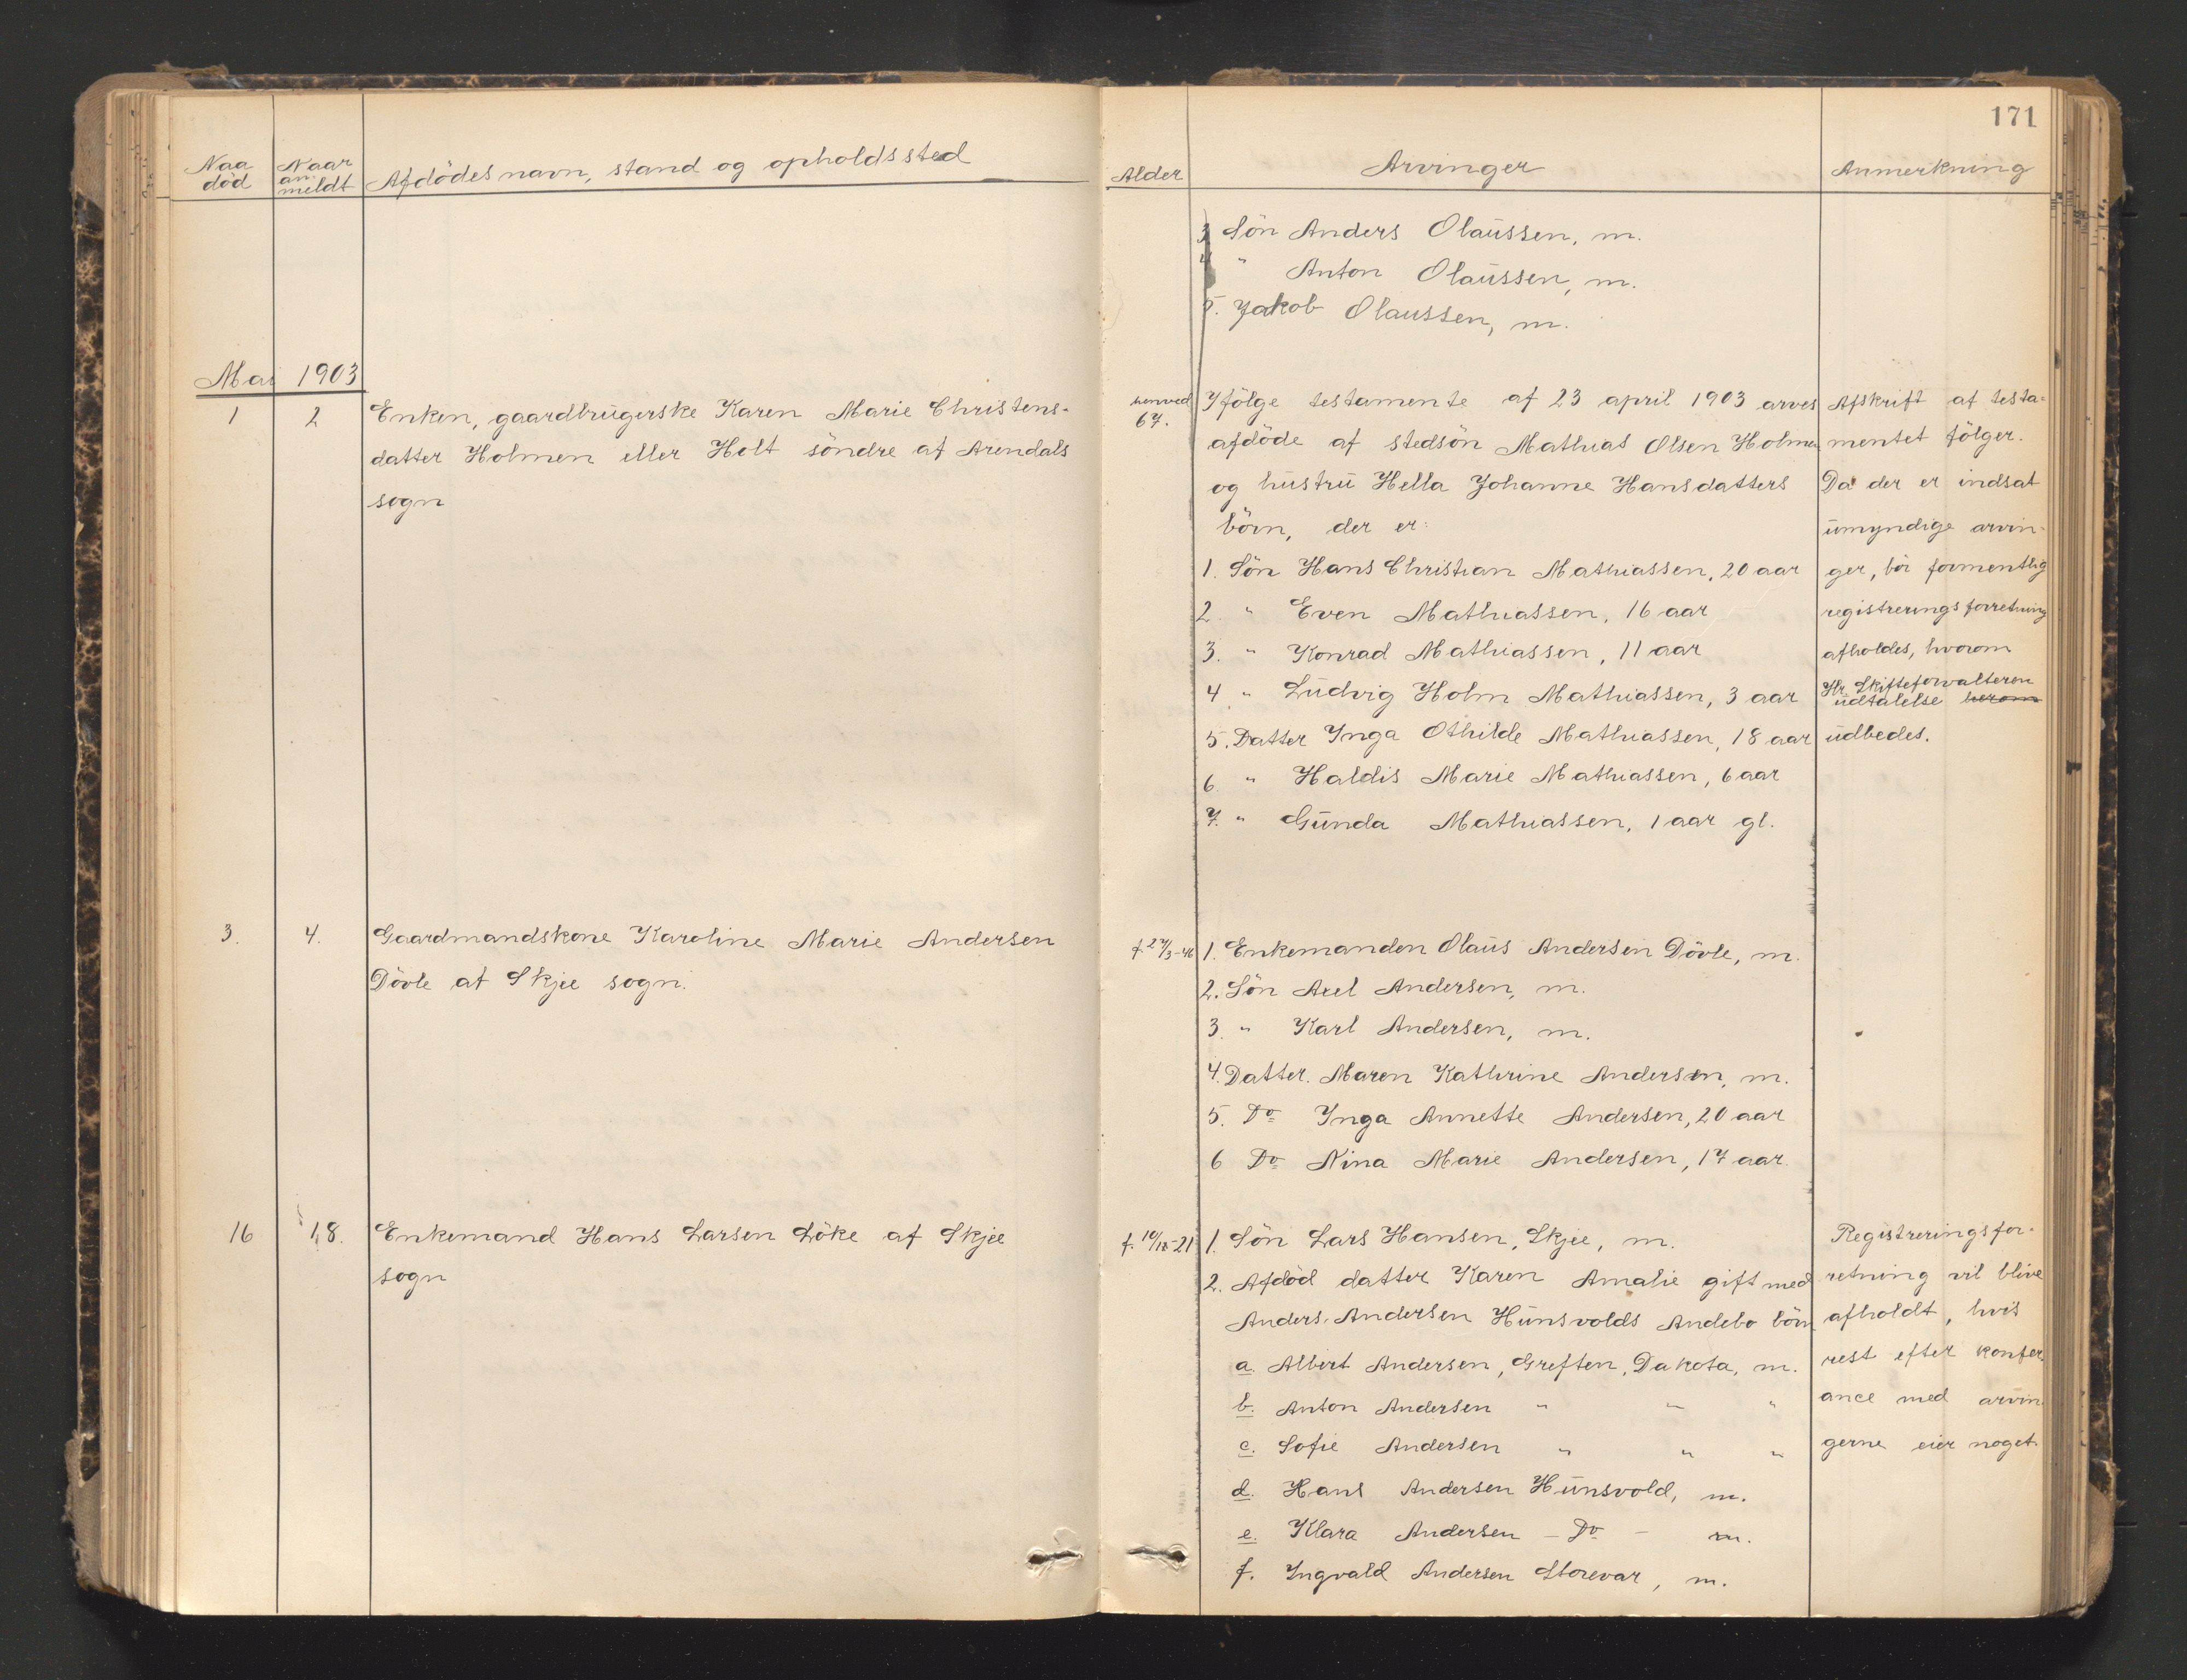 171
Naa død
Naar an. meldt
Afdödes navn, stand og opholdssted
Alder
Arvinger
Anmerkning
3 Sön Anders Olaussen, m.
4 " Anton Olaussen, m.
5. Jakob Olaussen, m.
Mai 1903
1 2 Enken, gaardbrugerske Karen Marie Christens-
datter Holmen eller Holt söndre af Arendals
sogn
henved
67.
Ifölge testamente af 23 april 1903 arves
afdöde af stedsön Mathias Olsen Holmen
og hustru Hella Johanne Hansdatters
börn, der er:
1. Sön Hans Christian Mathiassen, 20 aar
2. " Even Mathiassen, 16 aar
3. " Konrad Mathiassen, 11 aar
4 " Ludvig Holm Mathiassen, 3 aar
5. Datter Inga Othilde Mathiassen, 18 aar
6 " Haldis Marie Mathiassen, 6 aar
7. " Gunda Mathiassen, 1 aar gl.
Afskrift af testa=
mentet fölger.
Da der er indsat
umyndige arvin-
ger, bör formentlig
registreringsforretning
afholdes, hvorom
Hr. Skifteforvalteren
udtalelse herom
udbedes.
3. 4. Gaardmandskone Karoline Marie Andersen
Dövle af Skjee sogn.
f. 27/3-46
1. Enkemanden Olaus Andersen Dövle, m.
2. Sön Axel Andersen, m.
3. " Karl Andersen, m.
4. Datter. Maren Kathrine Andersen, m.
5. Do Inga Annette Andersen, 20 aar
6 Do Nina Marie Andersen, 17 aar.
16 18. Enkemand Hans Larsen Löke af Skjee
sogn
f. 10/12-21
1. Sön Lars Hansen, Skjee, m.
2. Afdöd datter Karen Amalie gift med
Anders Andersen Hunsvolds Andebo börn
a. Albert Andersen, Greften, Dakota, m.
b. Anton Andersen " " "
c. Sofie Andersen " " "
d. Hans Andersen Hunsvold, m.
e. Klara Andersen - Do - m.
f. Ingvald Andersen Storevar, m.
Registreringsfor-
retning vil blive
afholdt, hvis
rest efter konfer
ance med arvin
gerne eier noget.